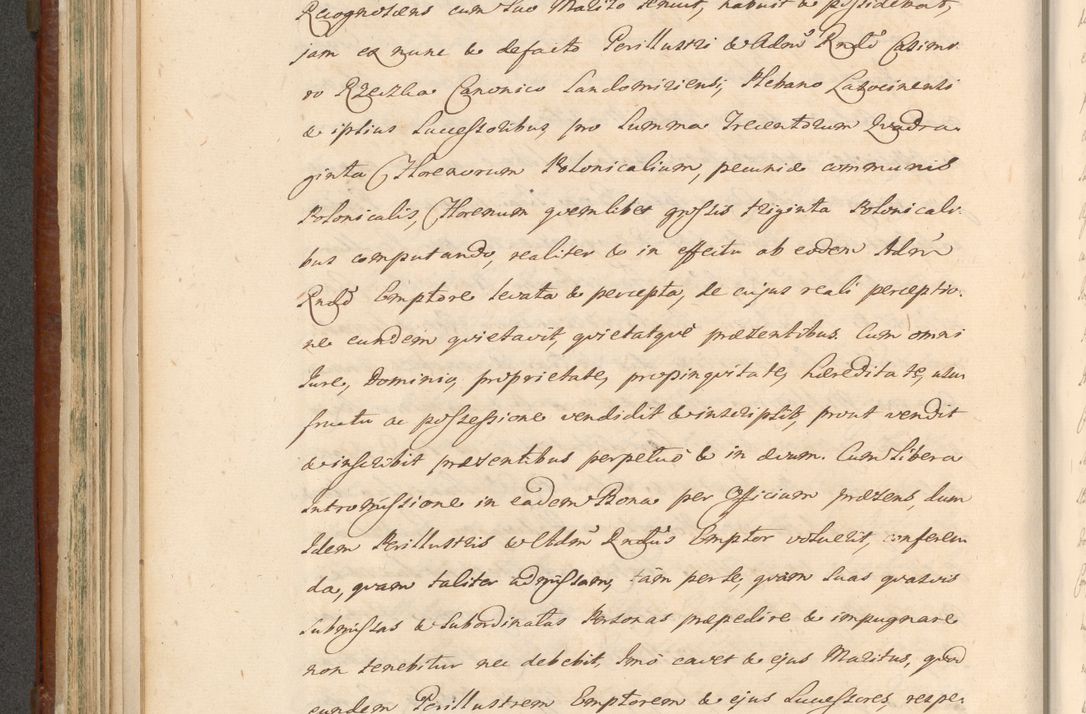 Recognoscens cum suo Marito tenuit, habuit & possidebat,
jam ex nunc & defacto Perillustri & Adm̃ Rndo Casimi
ro Rzeszka Canonico Sandomiriensi, Plebano Lasocinensi
& ipsius Successoribus pro Summa Trecentorum Quadra
ginta Florenorum Polonicalium, pecuniæ communis
Polonicalis, Florenum quemlibet grossis triginta Polonicali
bus computando, realiter & in effectu ab eodem Adm̃
Rndo Emptore levata & percepta, de cujus reali perceptio
ne eundem quietavit, quietatque præsentibus. Cum omni
Jure, Dominio, proprietate, propinquitate, hæreditate, usu
fructu ac possessione vendidit & inscripsit, prout vendit
& inscribit præsentibus perpetuò & in ævum. Cum libera
intromissione in eadem Bona per Officium præsens, dum
Idem Perillustris & Adm̃ Rndus Emptor voluerit, conferen
da, quam taliter admissam, tàm per se, quam suas quasvis
submissas & subordinatas Personas præpedire & impugnare
non tenebitur nec debebit, Imò cavet & ejus Maritus, quod
eundem Perillustrem Emptorem & ejus Successores respe